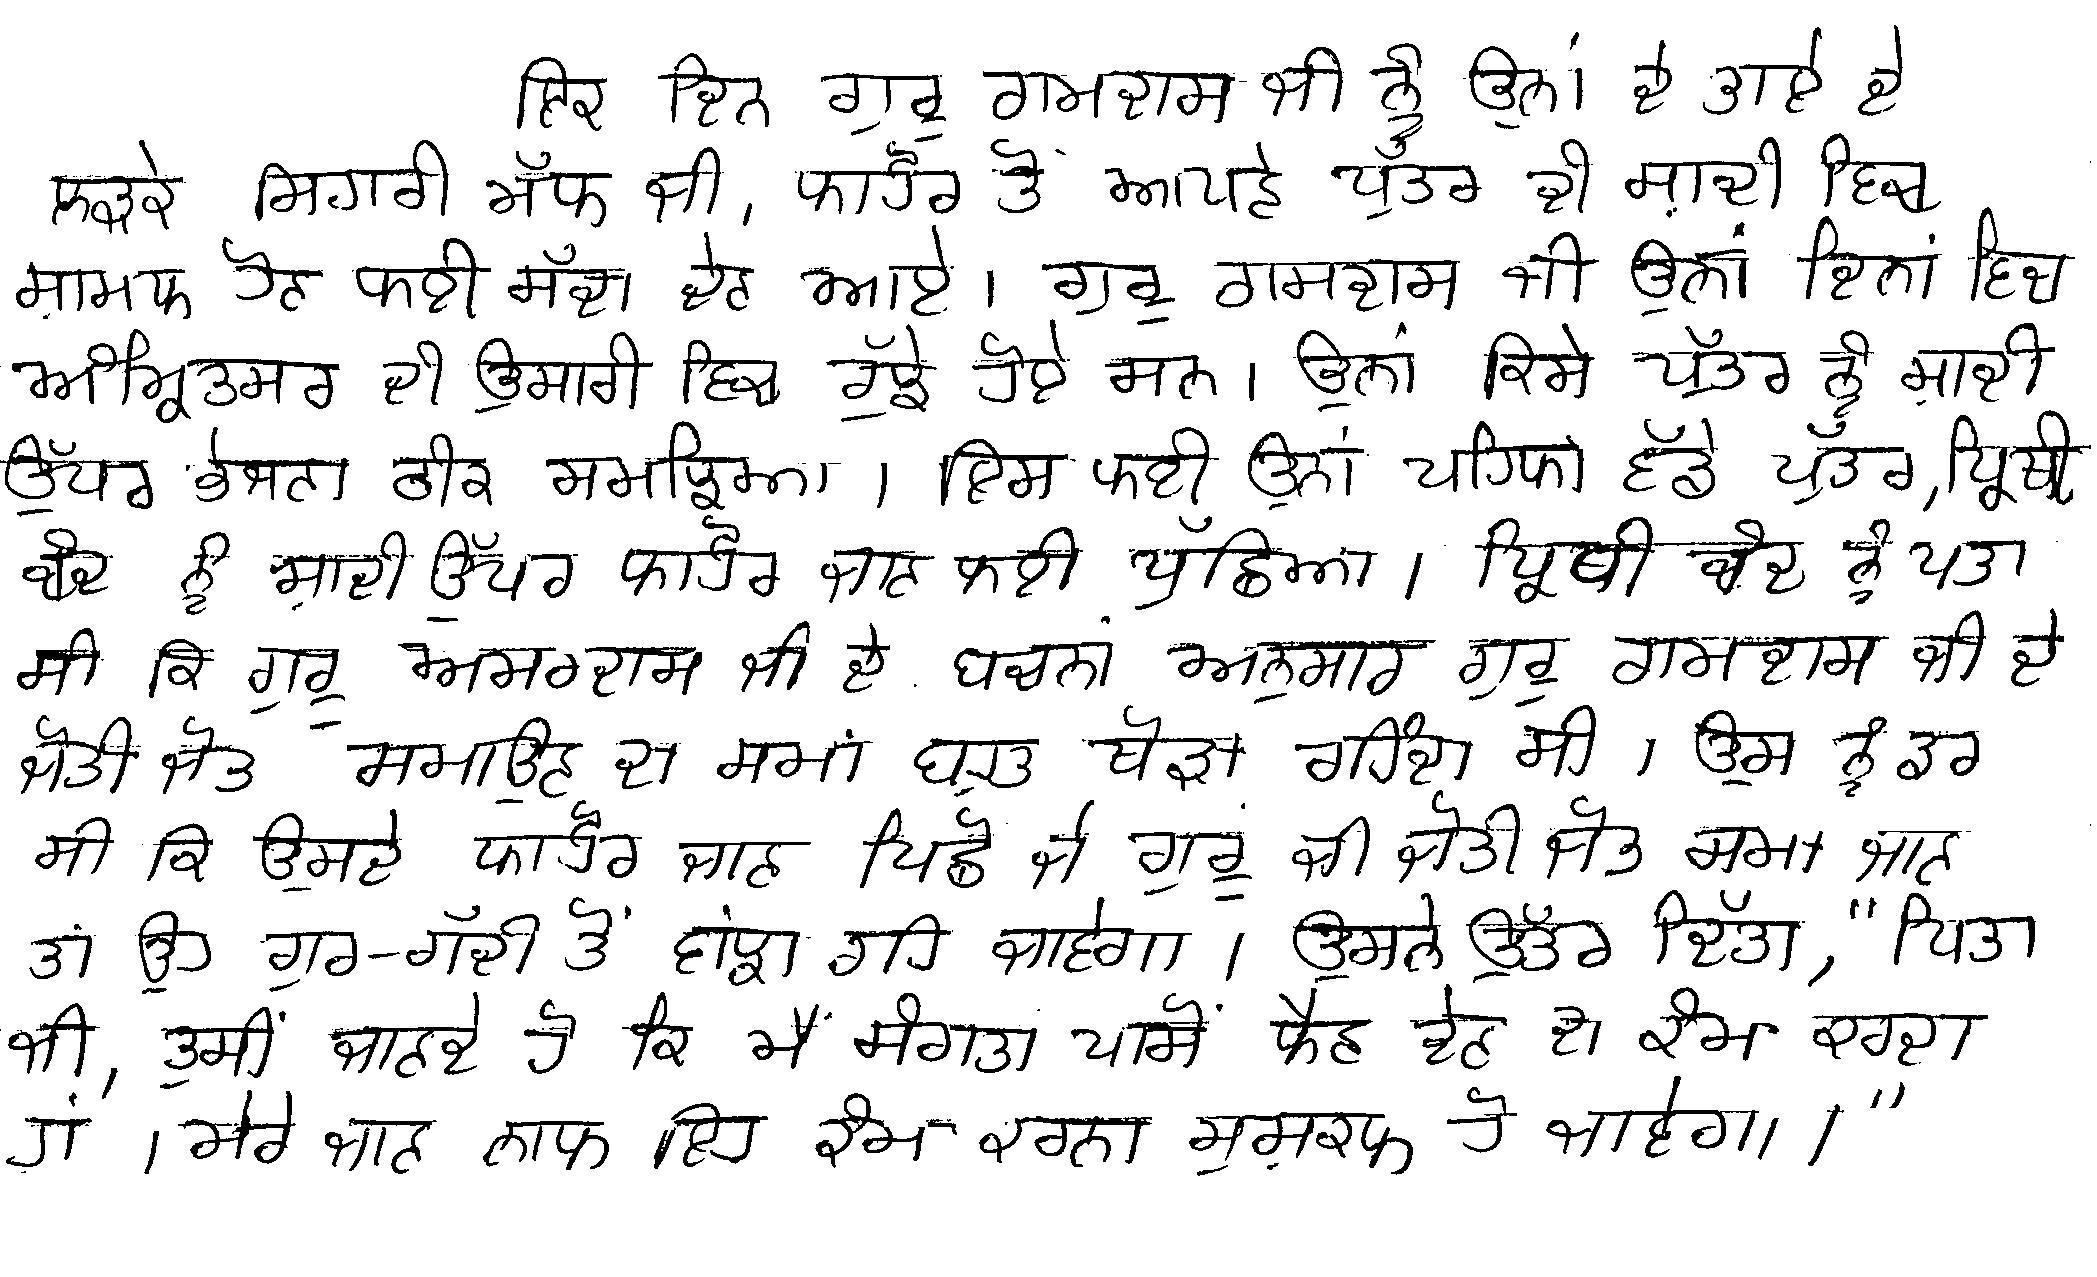 ਇਕ ਦਿਨ ਗੁਰੂ ਰਾਮਦਾਸ ਜੀ ਨੂੰ ਉਨਾਂ ਦੇ ਤਾਏ ਦੇ
ਲੜਕੇ ਸਿਹਾਰੀ ਮੱਲ ਜੀ, ਲਾਹੌਰ ਤੋਂ ਆਪਣੇ ਪੁੱਤਰ ਦੀ ਸ਼ਾਦੀ ਵਿਚ
ਸ਼ਾਮਲ ਹੋਣ ਲਈ ਸੱਦਾ ਦੇਣ ਆਏ। ਗੁਰੂ ਰਾਮਦਾਸ ਜੀ ਉਨਾਂ ਦਿਨਾਂ ਵਿਚ
ਅੰਮ੍ਰਿਤਸਰ ਦੀ ਉਸਾਰੀ ਵਿਚ ਰੁੱਝੇ ਹੋਏ ਸਨ। ਉਨਾਂ ਕਿਸੇ ਪੁੱਤਰ ਨੂੰ ਸ਼ਾਦੀ
ਉੱਪਰ ਭੇਜਣਾ ਠੀਕ ਸਮਝਿਆ। ਇਸ ਲਈ ਉਨਾਂ ਪਹਿਲਾਂ ਵੱਡੇ ਪੁੱਤਰ, ਪ੍ਰਿਥੀ
ਚੰਦ ਨੂੰ ਸ਼ਾਦੀ ਉੱਪਰ ਲਾਹੌਰ ਜਾਣ ਲਈ ਪੁੱਛਿਆ। ਪ੍ਰਿਥੀ ਚੰਦ ਨੂੰ ਪਤਾ
ਸੀ ਕਿ ਗੁਰੂ ਅਮਰਦਾਸ ਜੀ ਦੇ ਬਚਨਾਂ ਅਨੁਸਾਰ ਗੁਰੂ ਰਾਮਦਾਸ ਜੀ ਦੇ
ਜੋਤੀ ਜੋਤ ਸਮਾਉਣ ਦਾ ਸਮਾਂ ਬਹੁਤ ਥੋੜਾ ਰਹਿੰਦਾ ਸੀ। ਉਸ ਨੂੰ ਡਰ
ਸੀ ਕਿ ਉਸਦੇ ਲਾਹੌਰ ਜਾਣ ਪਿਛੋਂ ਜੇ ਗੁਰੂ ਜੀ ਜੋਤੀ ਜੋਤ ਸਮਾ ਜਾਣ
ਤਾਂ ਉਹ ਗੁਰ-ਗੱਦੀ ਤੋਂ ਵਾਂਝਾ ਰਹਿ ਜਾਵੇਗਾ। ਉਸਨੇ ਉੱਤਰ ਦਿੱਤਾ, "ਪਿਤਾ
ਜੀ, ਤੁਸੀਂ ਜਾਣਦੇ ਹੋ ਕਿ ਮੈਂ ਸੰਗਤਾਂ ਪਾਸੋਂ ਲੈਣ ਦੇਣ ਦਾ ਕੰਮ ਕਰਦਾ
ਹਾਂ। ਮੇਰੇ ਜਾਣ ਨਾਲ ਇਹ ਕੰਮ ਕਰਨਾ ਮੁਸ਼ਕਲ ਹੋ ਜਾਵੇਗਾ।"